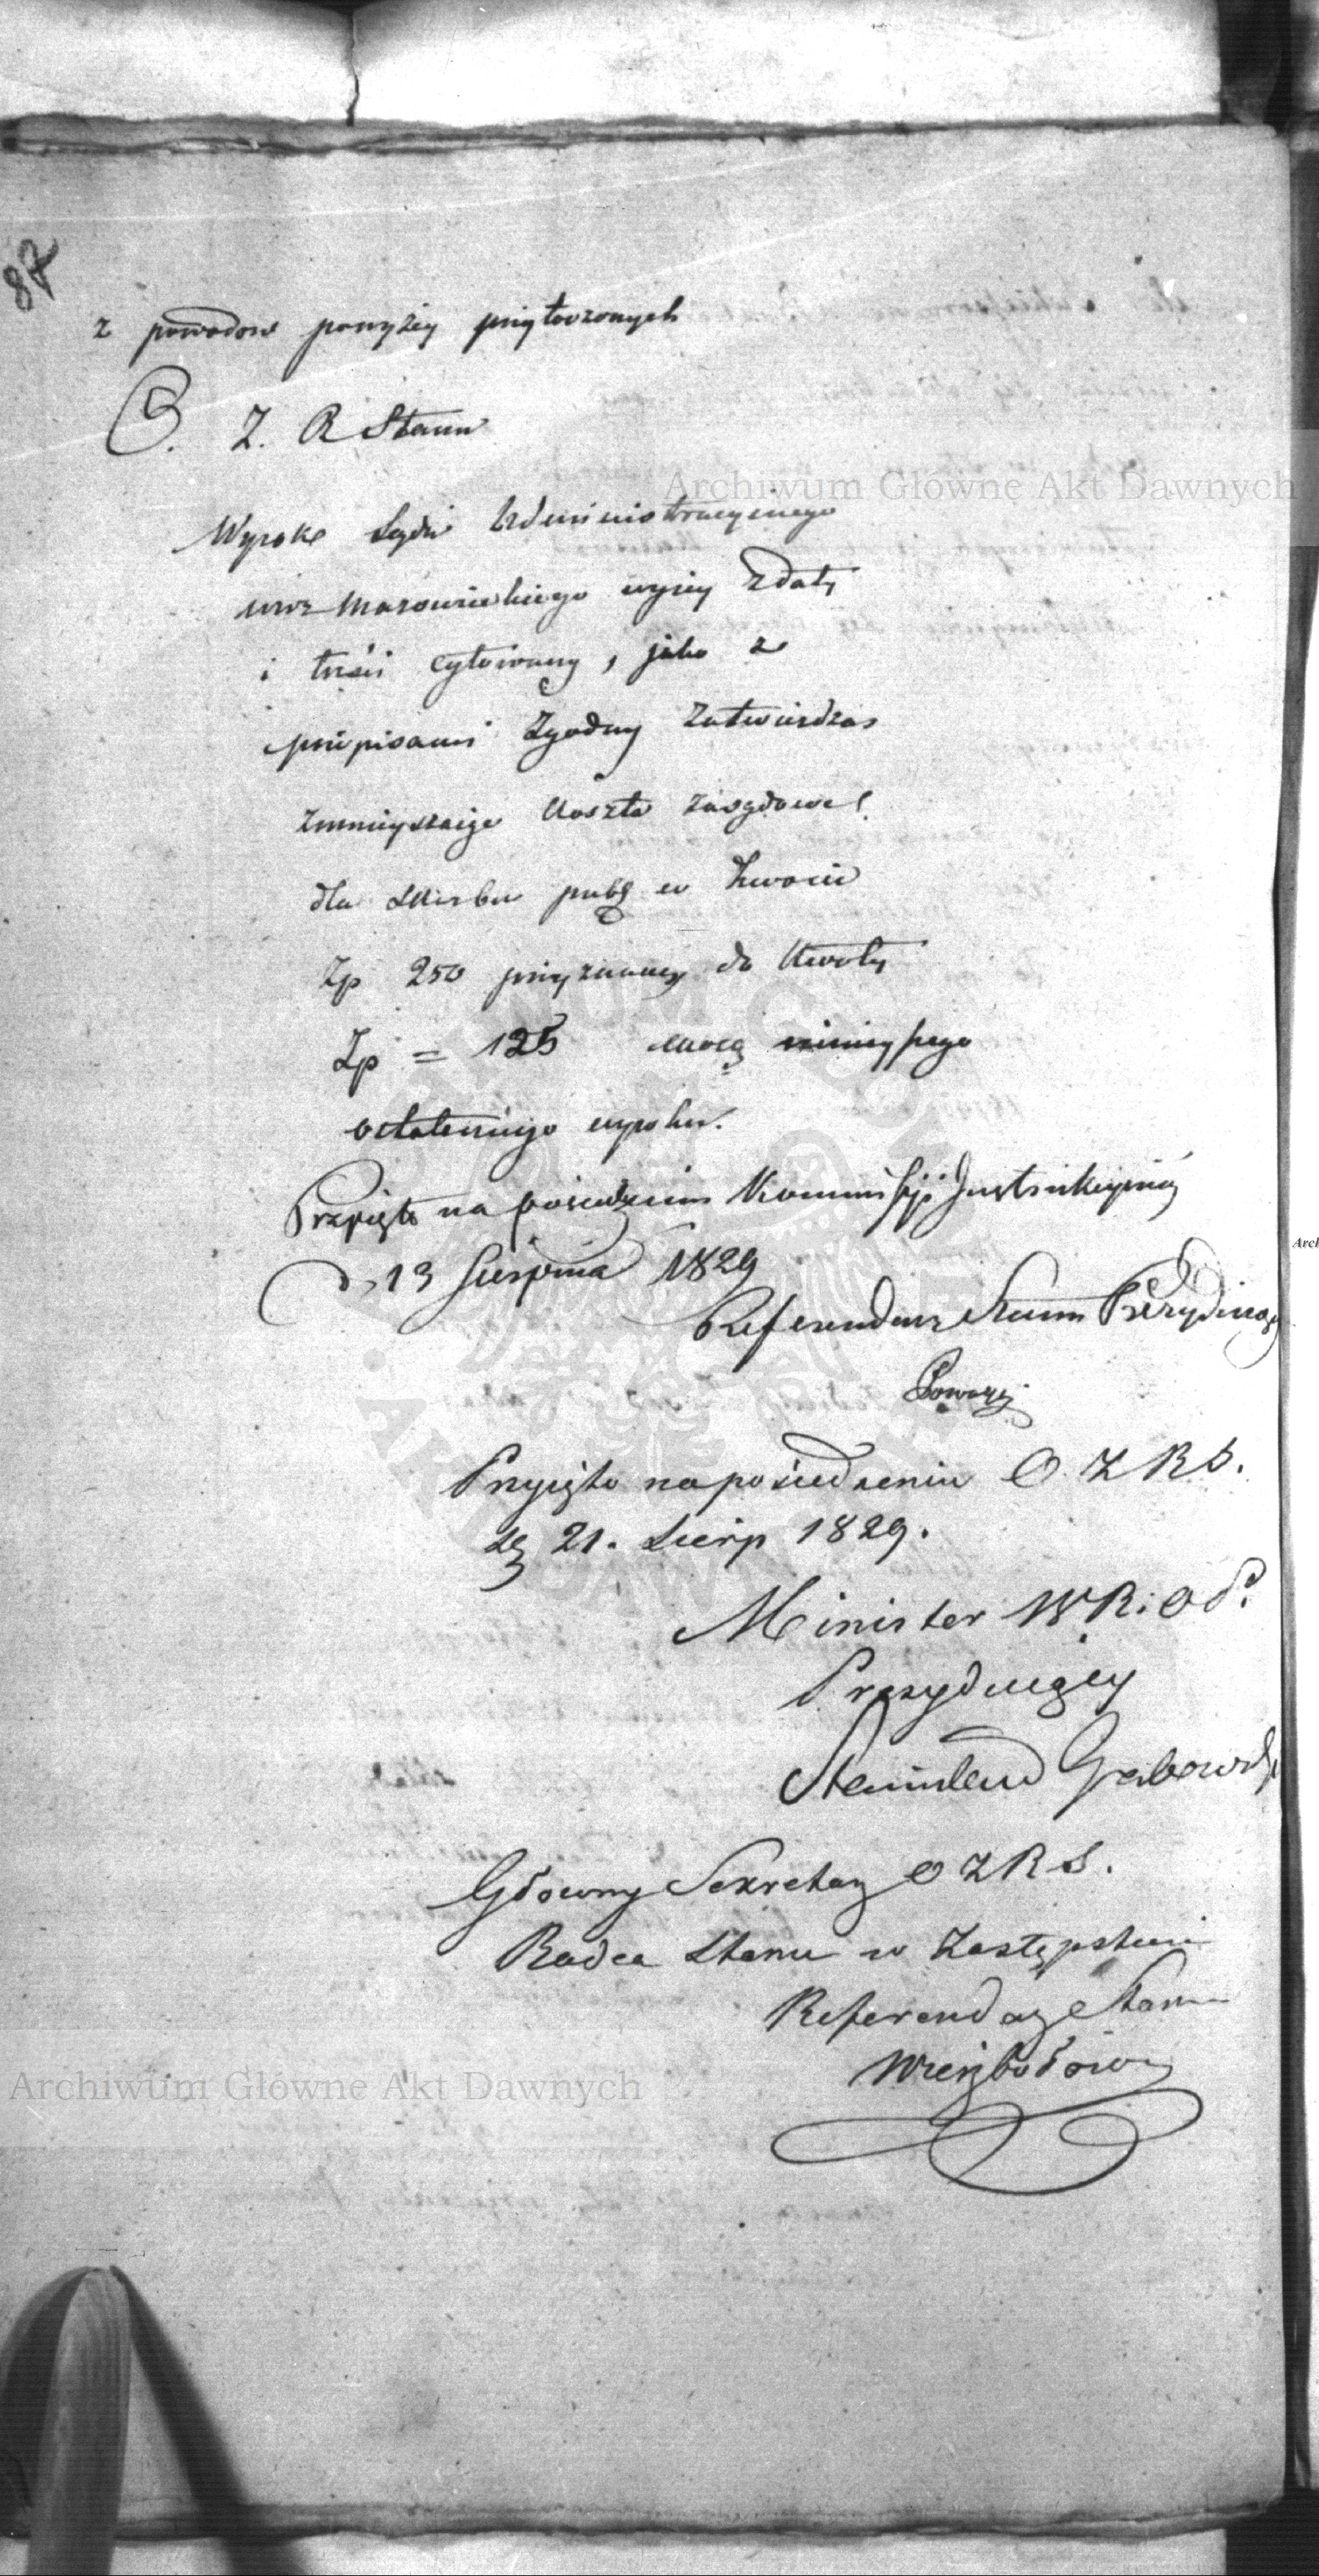 87
z powodow powyżey przytoczonych
O. Z. R Stanu
Wyrok Sądu Administracyinego
wwz Mazowieckiego wyżey z daty
i treści cytowany, jako z
przepisami zgodny zatwierdza
zmnieyszaiąc koszta zasądzone
dla Skarbu publ w kwocie
Zp 250 przyznane do kwoty
Zp = 125 mocą ninieyszego
ostatecznego wyroku.
Przyięto na posiedzeniu Kommissyi Instrukcyiney
d. 13 Sierpnia 1829
Referendarz Stanu Prezydujący
Przyięto na posiedzeniu O. Z R S.
dg 21. Sierp 1829.
Minister W. R. i O. P.
Prezydujący
Stanisław Grabowski
Główny Sekretarz O Z R S.
Radca Stanu w Zastępstwie
Referendarz Stanu
Archiwum Główne Akt Dawnych
Archiwum Główne Akt Dawnych